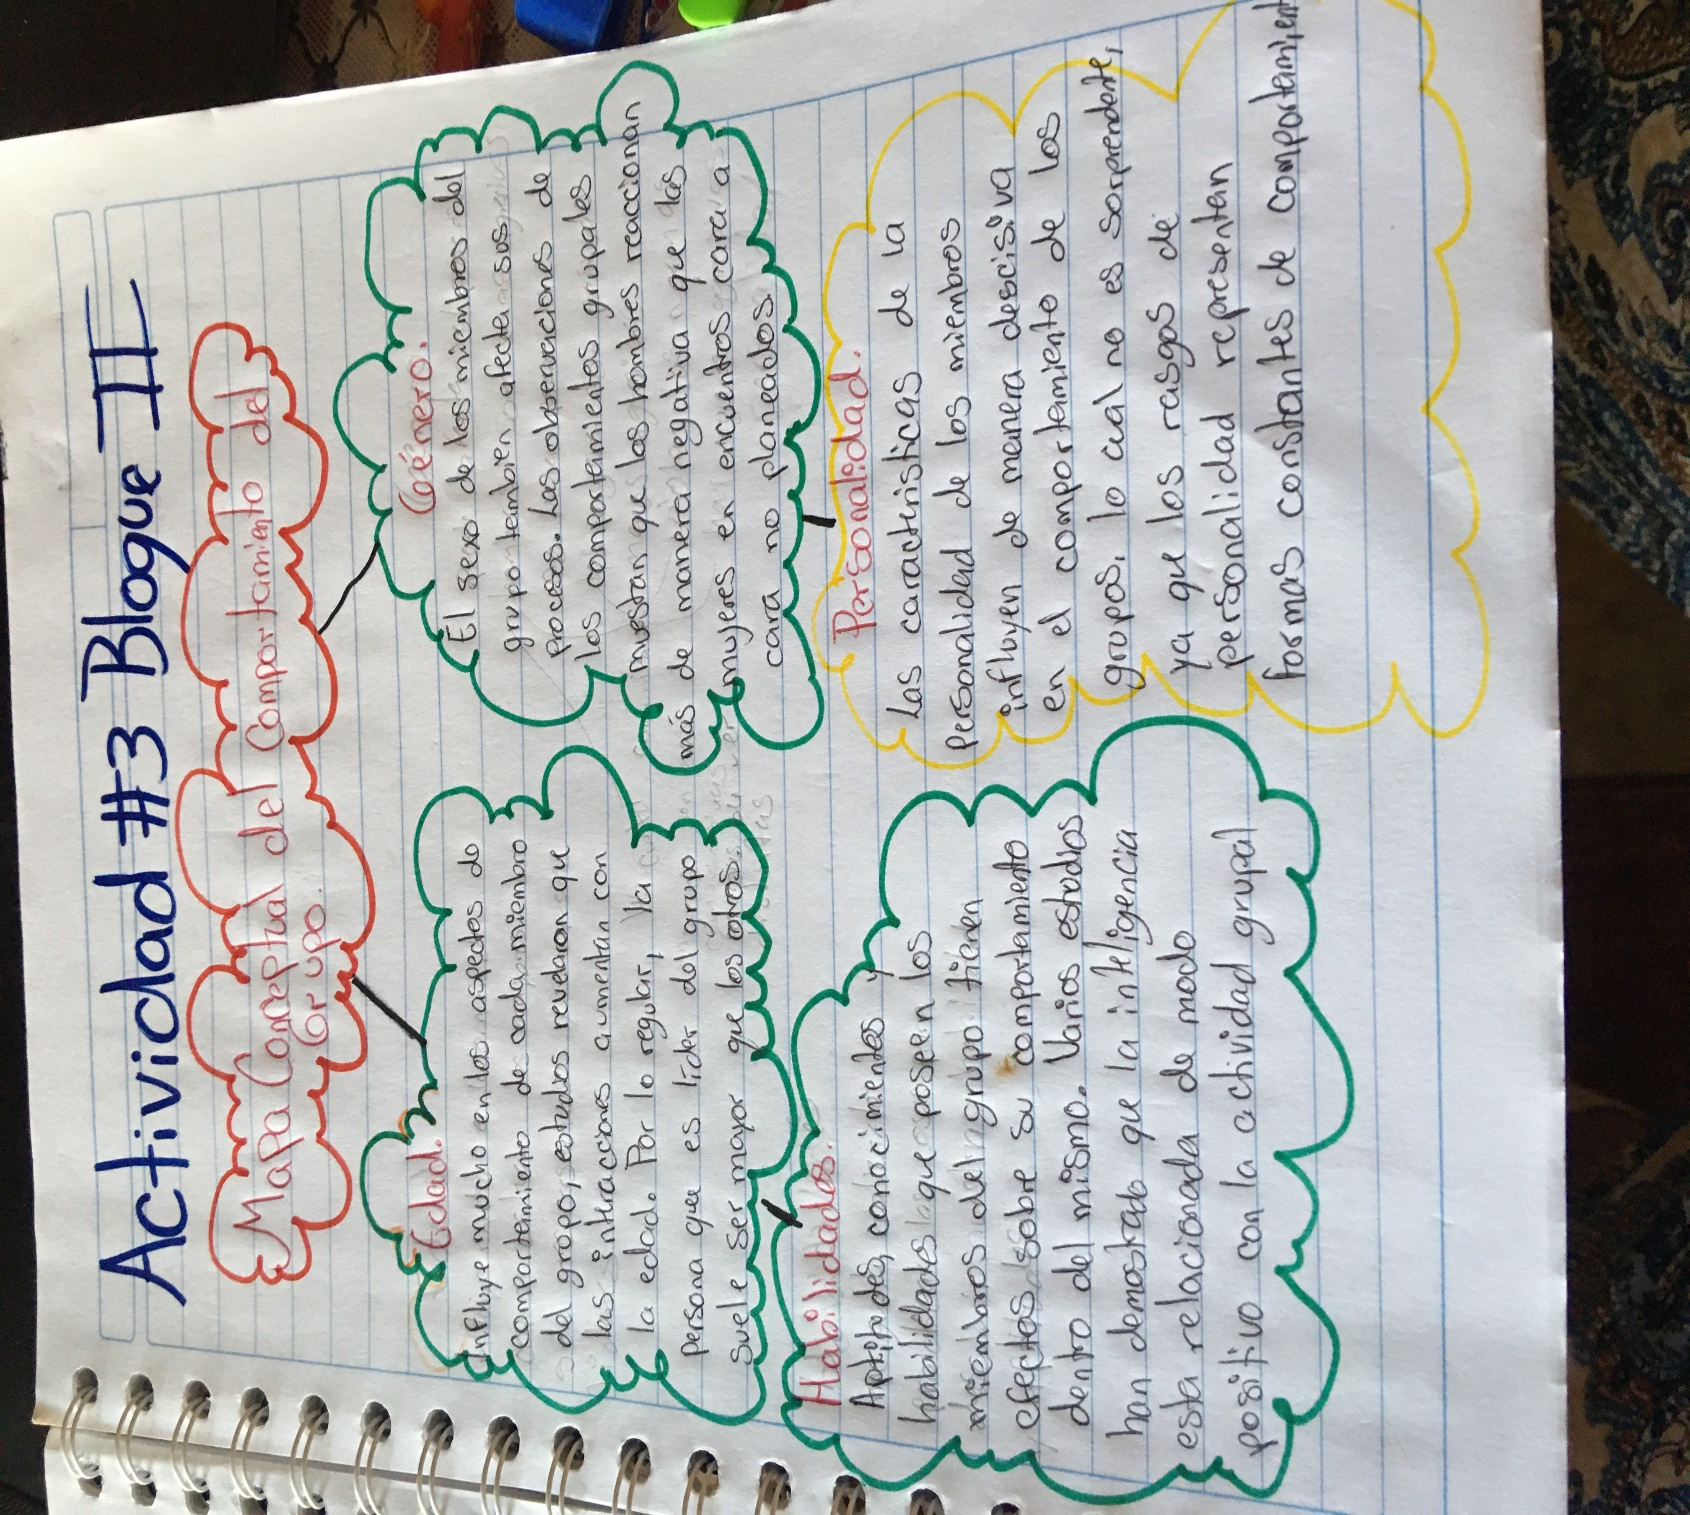 Actividad #3 Bloque II
Mapa Conceptual del Comportamiento del
Grupo.
Edad.
Influye mucho en los aspectos do
comportamiento de cada miembro
del grupo, estudios revelaron que
las intuacciones aumentan con
la edad. Por lo regular, la
persona que es lider del grupo
suele ser mayor que los otros.
Género.
El sexo de los miembros del
grupo tambien afecta sus
procesos. Las observaciones de
los comportamientos grupales
muestran que los hombres reaccionan
más de manera negativa que las
mujeres en encuentros cara a
cara no planeados.
Habilidades.
Aptitudes, conocimientos y
habilidades que poseen los
miembros del grupo tienen
efectos sobre su comportamiento
dentro del mismo. Varios estudios
han demostrado que la inteligencia
esta relacionada de modo
positivo con la actividad grupal
Personalidad.
Las caracteristicas de la
personalidad de los miembros
influyen de manera descisiva
en el comportamiento de los
grupos, lo cual no es sorprendente,
ya que los rasgos de
personalidad representan
formas constantes de comportamient